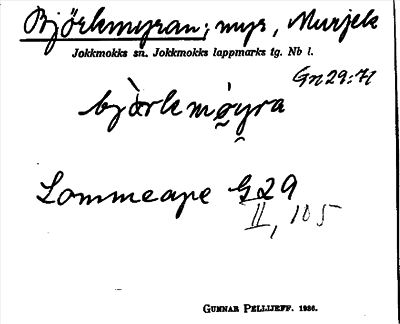 Björkmyran; myr, Murjek
Jokkmokks sn. Jokkmokks lappmarks tg. Nb l.
Gn 29:71
Lommeape G29
II, 105
GUNNAR PELLIJEFF. 1936.